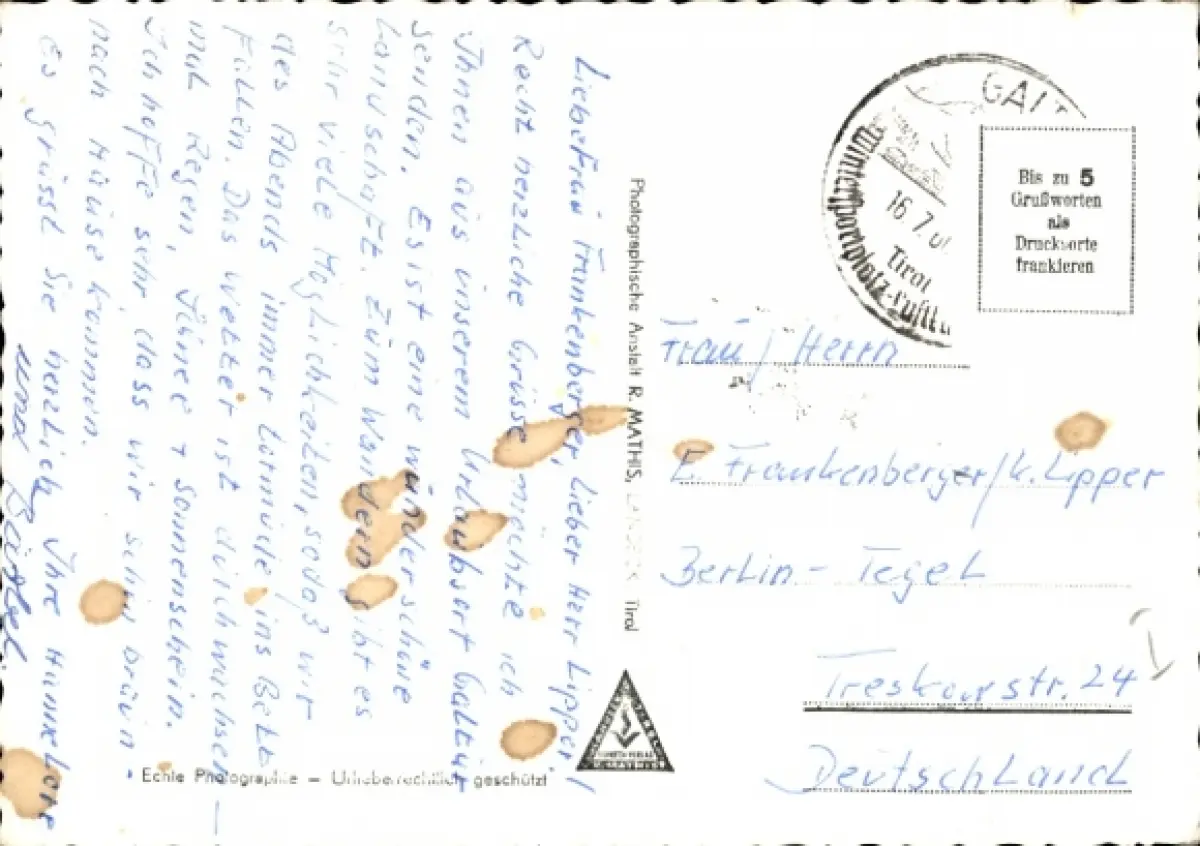 Liebe Frau Frankenberger, Lieber Herr Lipper!
Recht herzliche Grüsse möchte ich
Ihnen aus unserem Urlaubsort Galtür
senden. Es ist eine wunderschöne
Landschaft. Zum Wandern gibt es
sehr viele Möglichkeiten, sodaß wir
des Abends immer totmüde ins Bett
fallen. Das Wetter ist durchwachsen –
mal Regen, Föne + Sonnenschein.
Ich hoffe sehr dass wir schön braun
nach Hause kommen.
Es grüsst Sie herzlich Ihre Hannelore
und
Photographische Anstalt R. MATHIS, LANDECK Tirol
Echte Photographie – Urheberrechtlich geschützt
GALT
16.7.6
Tirol
Wintersportplatz-Luftku
Bis zu 5
Grußworten
als
Drucksorte
frankieren
Frau / Herrn
E. Frankenberger / K. Lipper
Berlin - Tegel
Treskowstr. 24
Deutschland